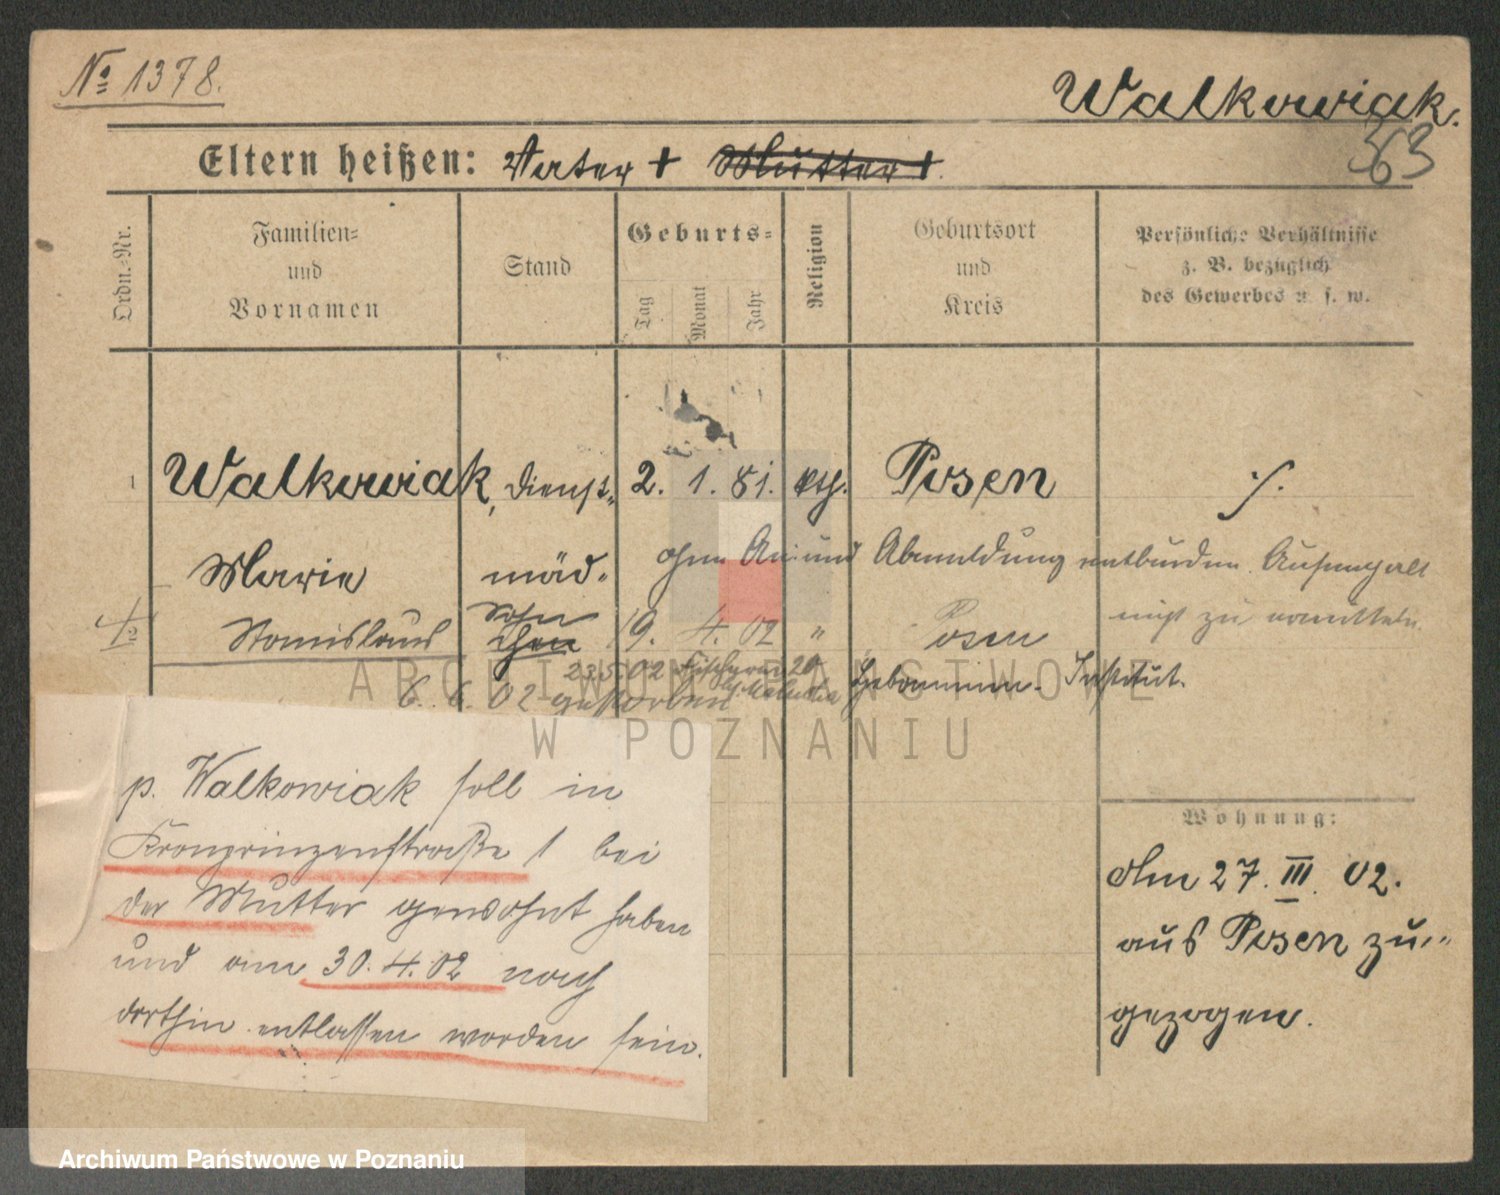 No 1378.
Walkowiak.
363
Eltern heißen: Vater + Mutter +.
Ordn.-Nr.
Familien-
und
Vornamen
Stand
Geburts-
Tag
Monat
Jahr
Religion
Geburtsort
und
Kreis
Persönliche Verhältnisse
z. B. bezüglich
des Gewerbes u. s. w.
1 Walkowiak, Dienst- 2. 1. 81. kth. Posen ./.
Marie mäd.
ohne An- und Abmeldung entbunden. Aufenthalt
nicht zu ermitteln.
Stanislaus Sohn 19. 4. 02 " Posen
23 5 02 20
Hebammen-Institut.
6. 6. 02 gestorben
ARCHIWUM PAŃSTWOWE
W POZNANIU
p. Walkowiak soll in
Kronprinzenstraße 1 bei
der Mutter gewohnt haben
und am 30.4.02 nach
dorthin entlassen worden sein.
Wohnung:
Am 27. III. 02.
aus Posen zu-
gezogen.
Archiwum Państwowe w Poznaniu